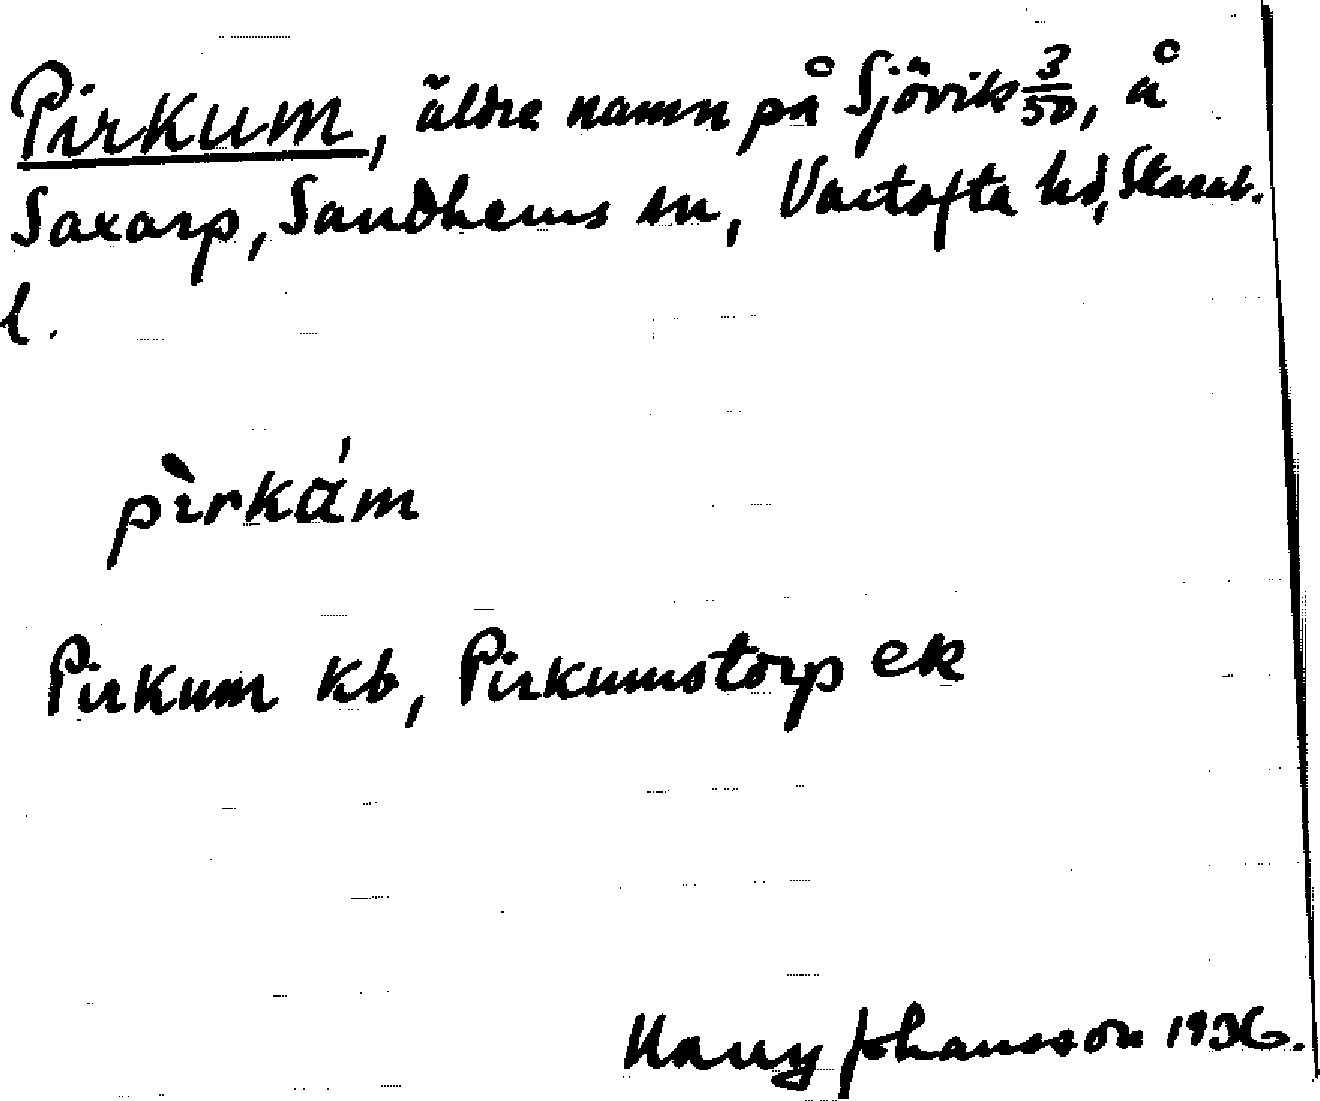 Pirkum, äldre namn på Sjövik 3/50, å
Saxarp, Sandhems sn, Vartofta hd, Skarab.
l.
pìrkám
Pirkum kb, Pirkumstorp ek
Harry Johansson 1936.